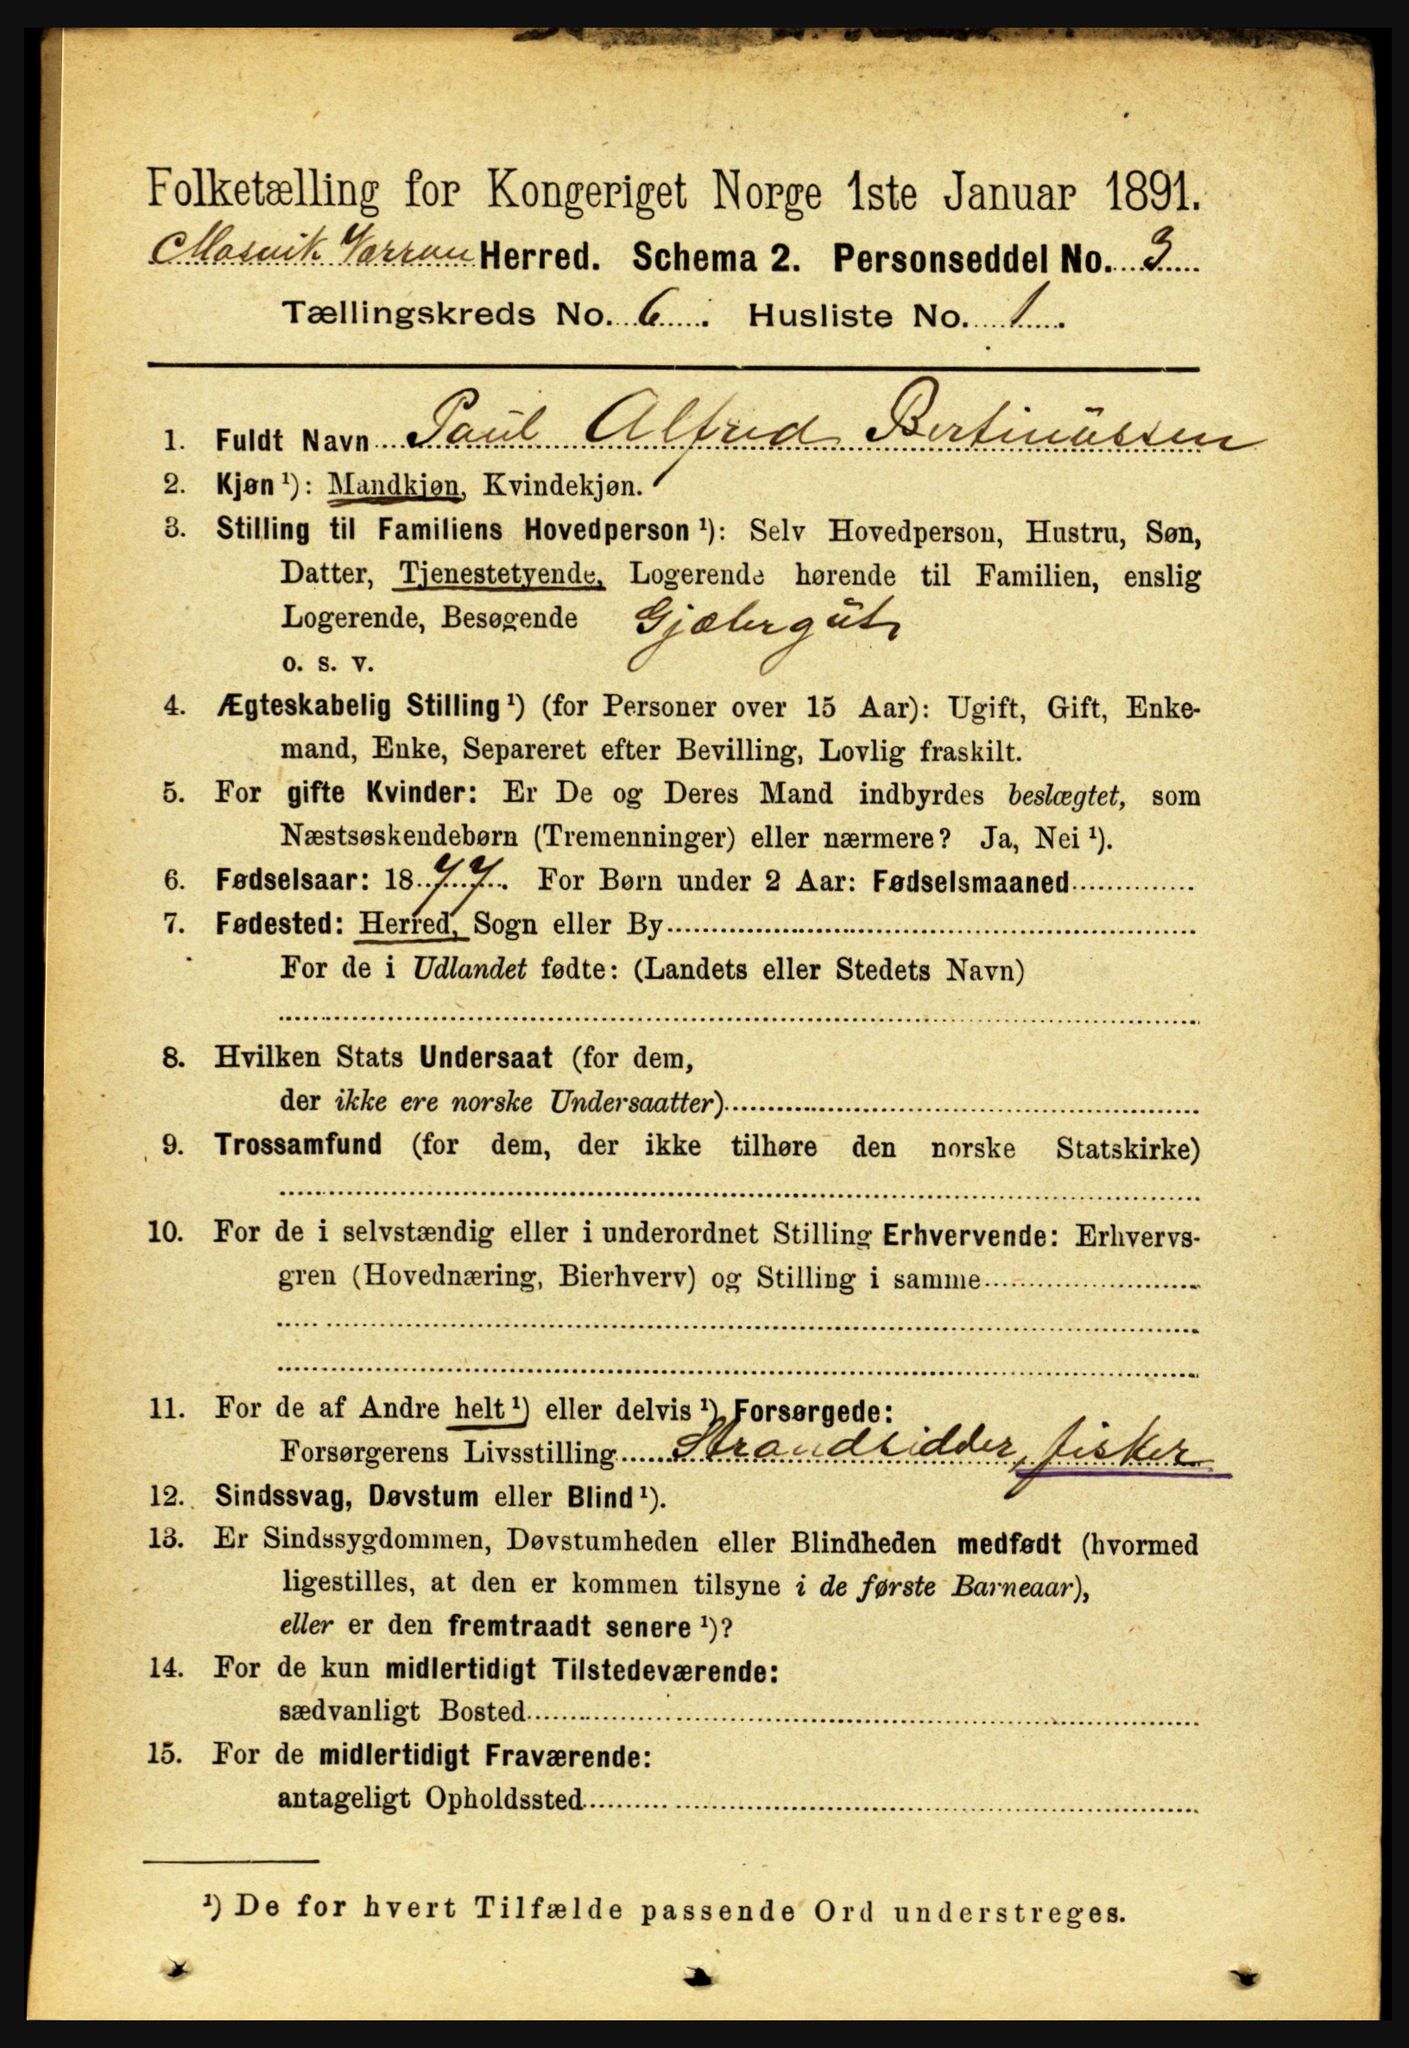 Folketælling for Kongeriget Norge 1ste Januar 1891.
Mosvik Værran Herred. Schema 2. Personseddel No. 3
Tællingskreds No. 6. Husliste No. 1.
1. Fuldt Navn Paul Alfred Bertinussen
2. Kjøn ¹): Mandkjøn, Kvindekjøn.
3. Stilling til Familiens Hovedperson ¹): Selv Hovedperson, Hustru, Søn,
Datter, Tjenestetyende, Logerende hørende til Familien, enslig
Logerende, Besøgende Gjætergut
o. s. v.
4. Ægteskabelig Stilling ¹) (for Personer over 15 Aar): Ugift, Gift, Enke-
mand, Enke, Separeret efter Bevilling, Lovlig fraskilt.
5. For gifte Kvinder: Er De og Deres Mand indbyrdes beslægtet, som
Næstsøskendebørn (Tremenninger) eller nærmere? Ja, Nei ¹).
6. Fødselsaar: 1877. For Børn under 2 Aar: Fødselsmaaned
7. Fødested: Herred, Sogn eller By
For de i Udlandet fødte: (Landets eller Stedets Navn)
8. Hvilken Stats Undersaat (for dem,
der ikke ere norske Undersaatter)
9. Trossamfund (for dem, der ikke tilhøre den norske Statskirke)
10. For de i selvstændig eller i underordnet Stilling Erhvervende: Erhvervs-
gren (Hovednæring, Bierhverv) og Stilling i samme
11. For de af Andre helt ¹) eller delvis ¹) Forsørgede:
Forsørgerens Livsstilling Strandsidder, fisker
12. Sindssvag, Døvstum eller Blind ¹).
13. Er Sindssygdommen, Døvstumheden eller Blindheden medfødt (hvormed
ligestilles, at den er kommen tilsyne i de første Barneaar),
eller er den fremtraadt senere ¹)?
14. For de kun midlertidigt Tilstedeværende:
sædvanligt Bosted
15. For de midlertidigt Fraværende:
antageligt Opholdssted
¹) De for hvert Tilfælde passende Ord understreges.